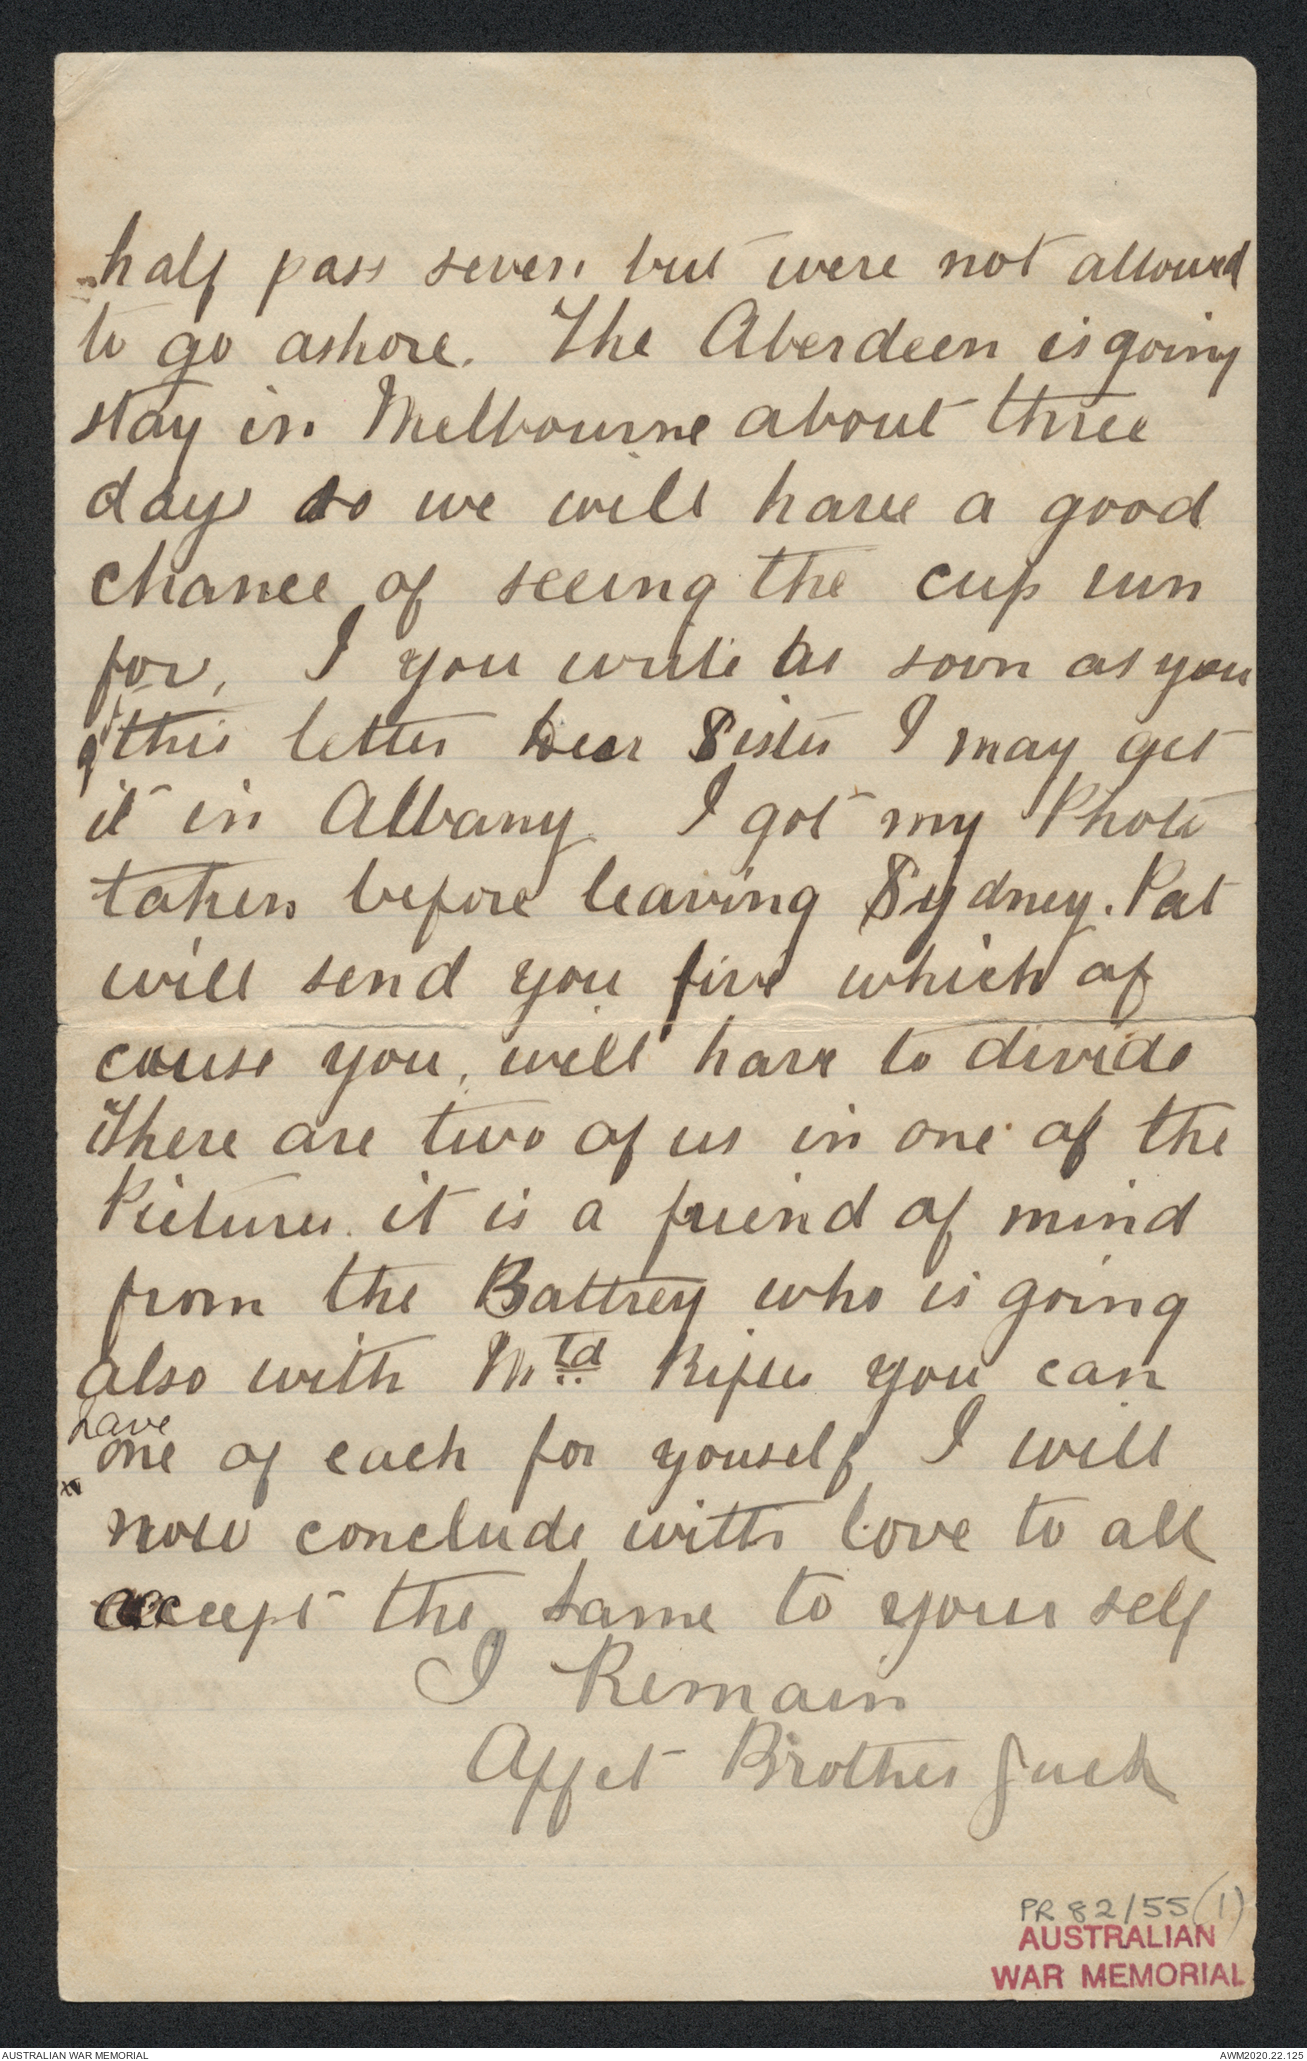 half pass seven but were not allowed
to go ashore. The Aberdeen is going
stay in Melbourne about three
days so we will have a good
chance of seeing the cup run
for, I you write as soon as you
get this letter Dear Sister I may get
it in Albany I got my Photo
taken before leaving Sydney. Pat
will send you five which of
couse you will have to divide
There are two of us in one of the
Pictures it is a friend of mind
from the Battrey who is going
also with Mtd Rifles you can
have
one of each for youself I will
now conclude with love to all
accept the same to your self
I Remain
Affet Brother Jack
PR 82/55 (1)
AUSTRALIAN
WAR MEMORIAL
AUSTRALIAN WAR MEMORIAL
AWM2020.22.125